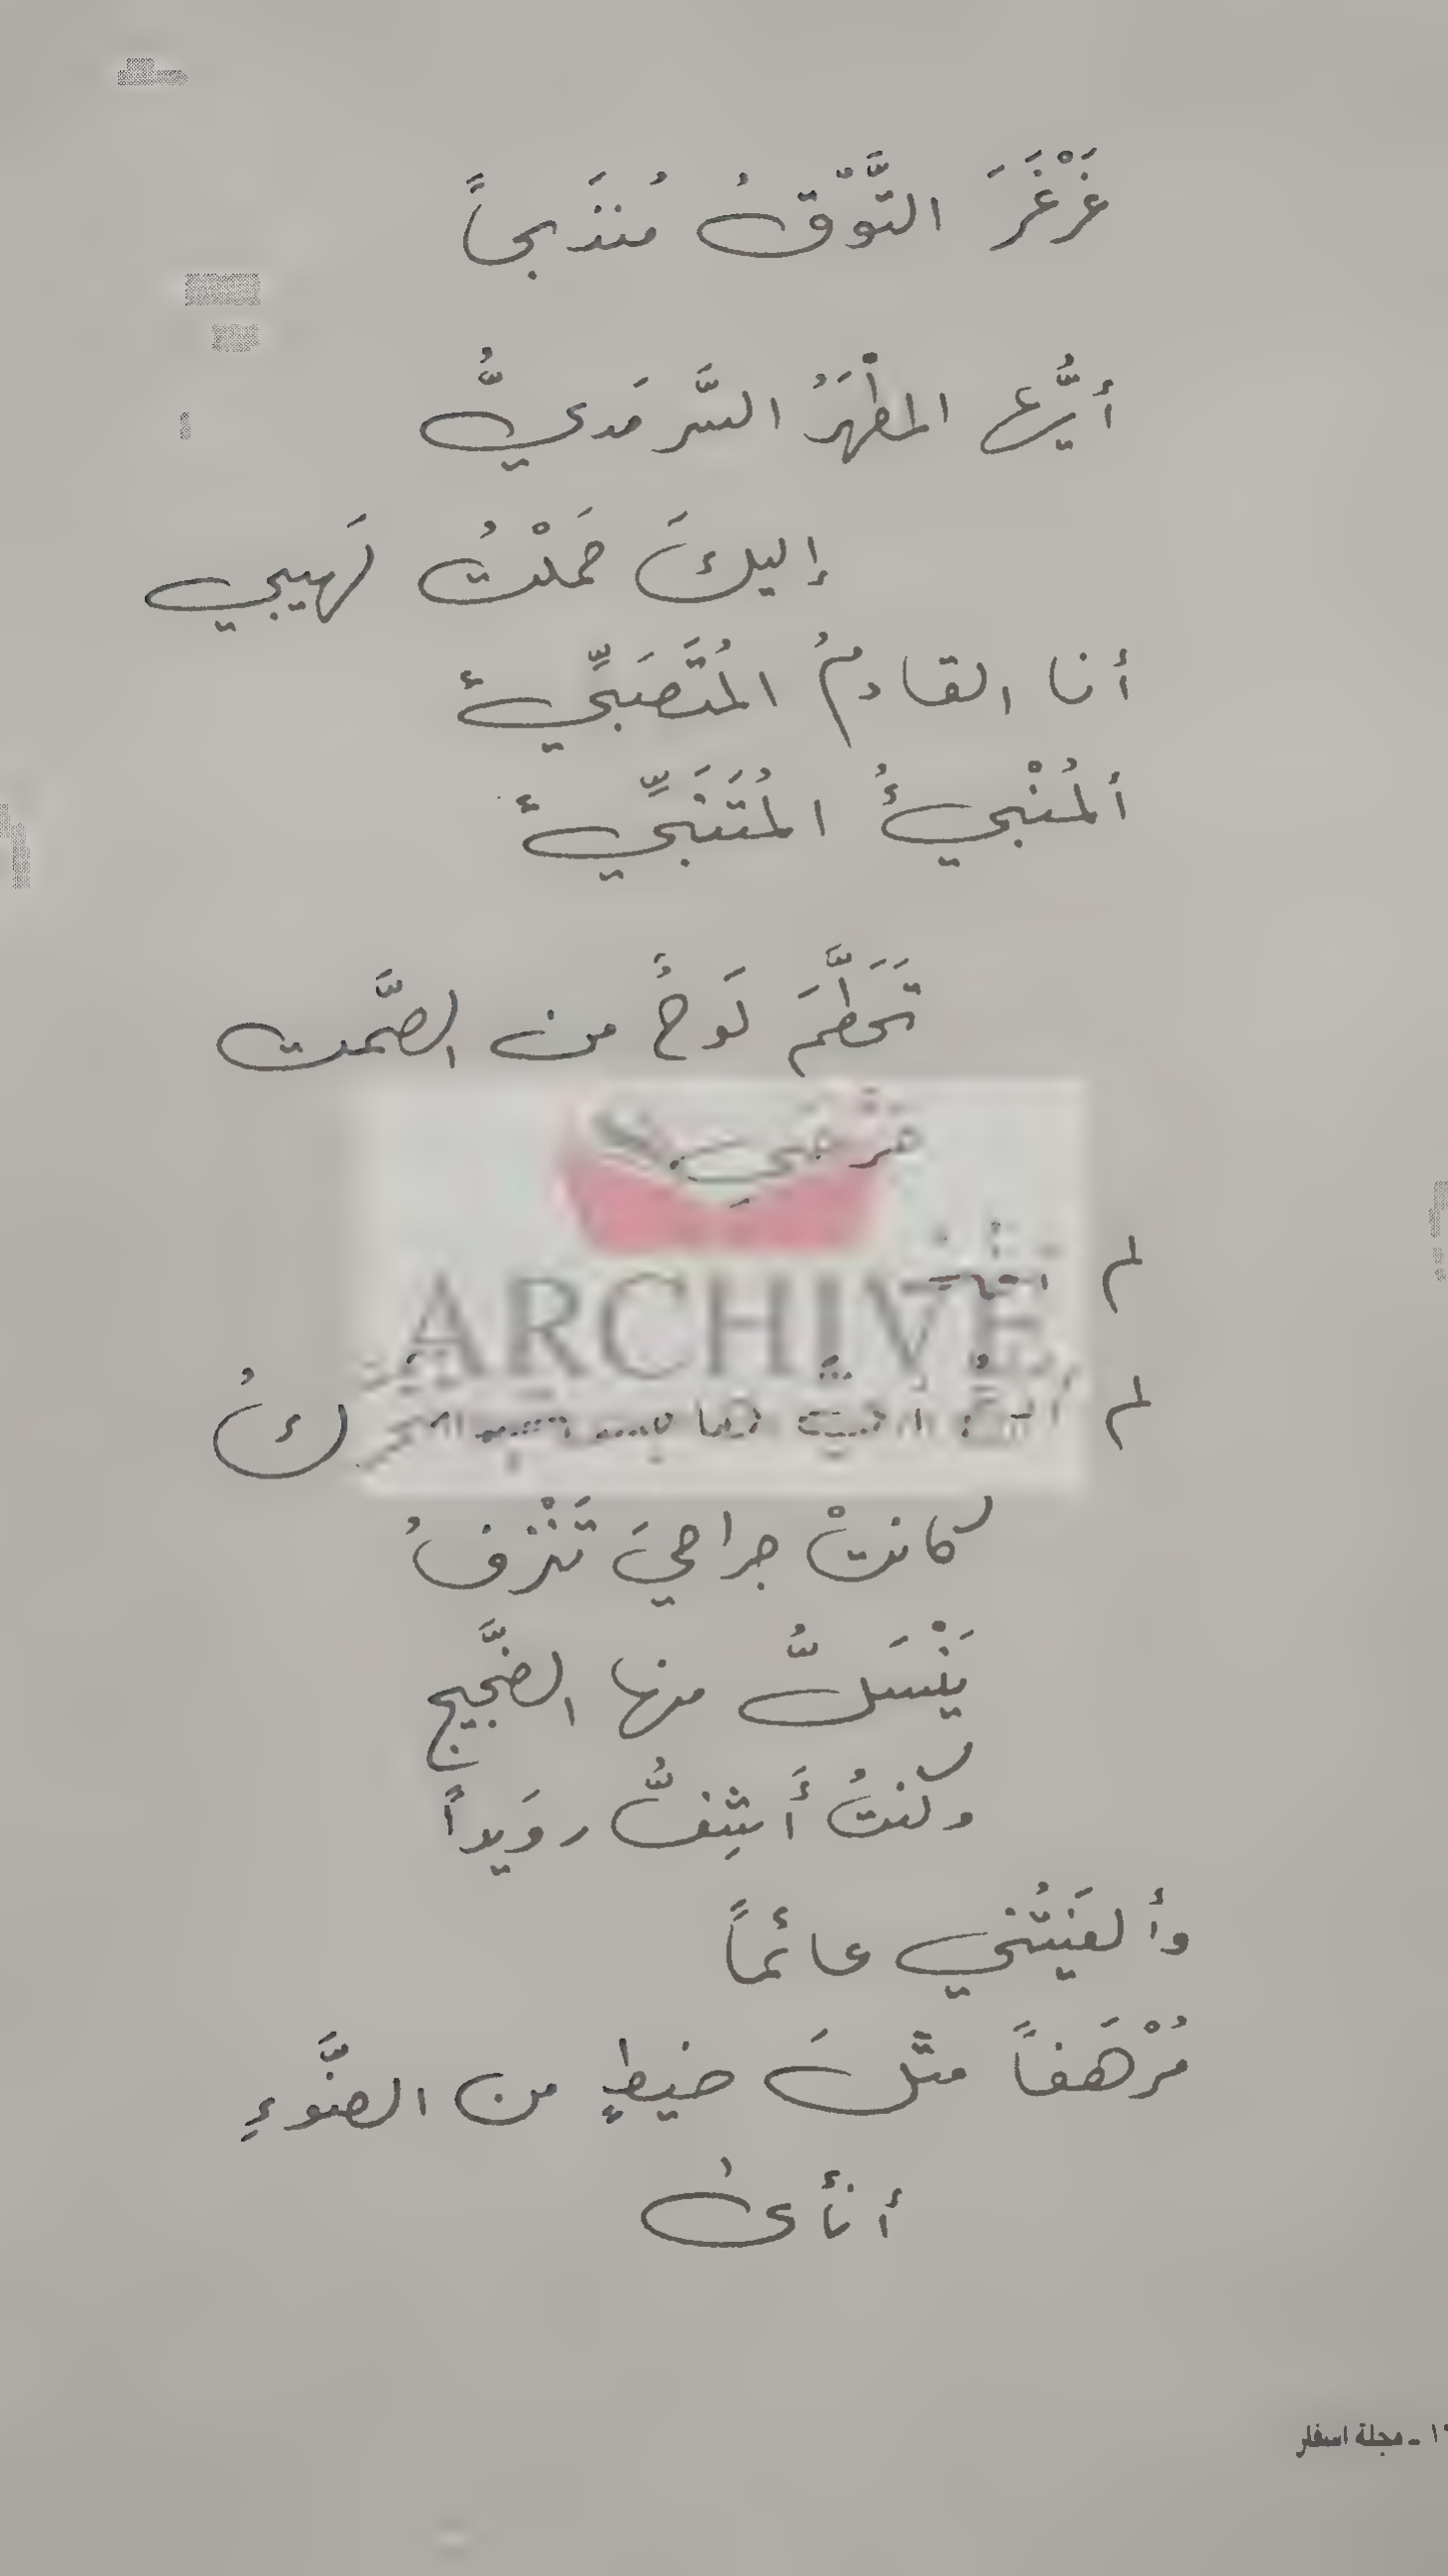 غَرْغَرَ التَّوّقُ مُنذَبحاً
أيُّها المطْهَرُ السَّرمَديُّ
إليكَ حَملْتُ لَهيبي
أنا القادمُ المُتَّصَبِّيءُ
ألمُنْبيءُ المُتَنَبِّيءُ
تَحَطَّمَ لَوحٌ من الصَّمت
لم
لم
كانتْ جراحيَ تَنْزفُ
يَنْسَلُّ منها الضَّجيج
وكنتُ أَشِفُّ روَيداً
وألفَيتُني عائماً
مُرْهَفاً مثلَ خيطٍ من الضَّوءِ
أنأىٰ
ARCHIVE
مجلة اسفار